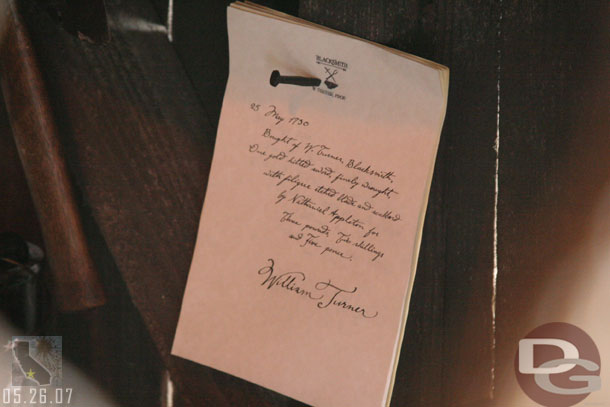 BLACKSMITH
25 May 1730
Bought of W. Turner, Blacksmith,
One gold hilted sword, finely wrought,
with filigree etched blade and
by Nathaniel Appleton for
Three pounds, Two shillings
and Five pence.
William Turner
05.26.07
DG